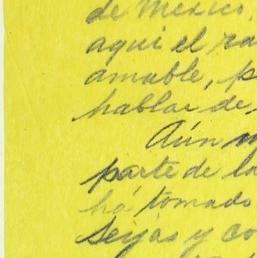 de Mexico,
aqui el ra
amable, p
hablar de
Aún n
parte de la
há tomado
Seijas y co